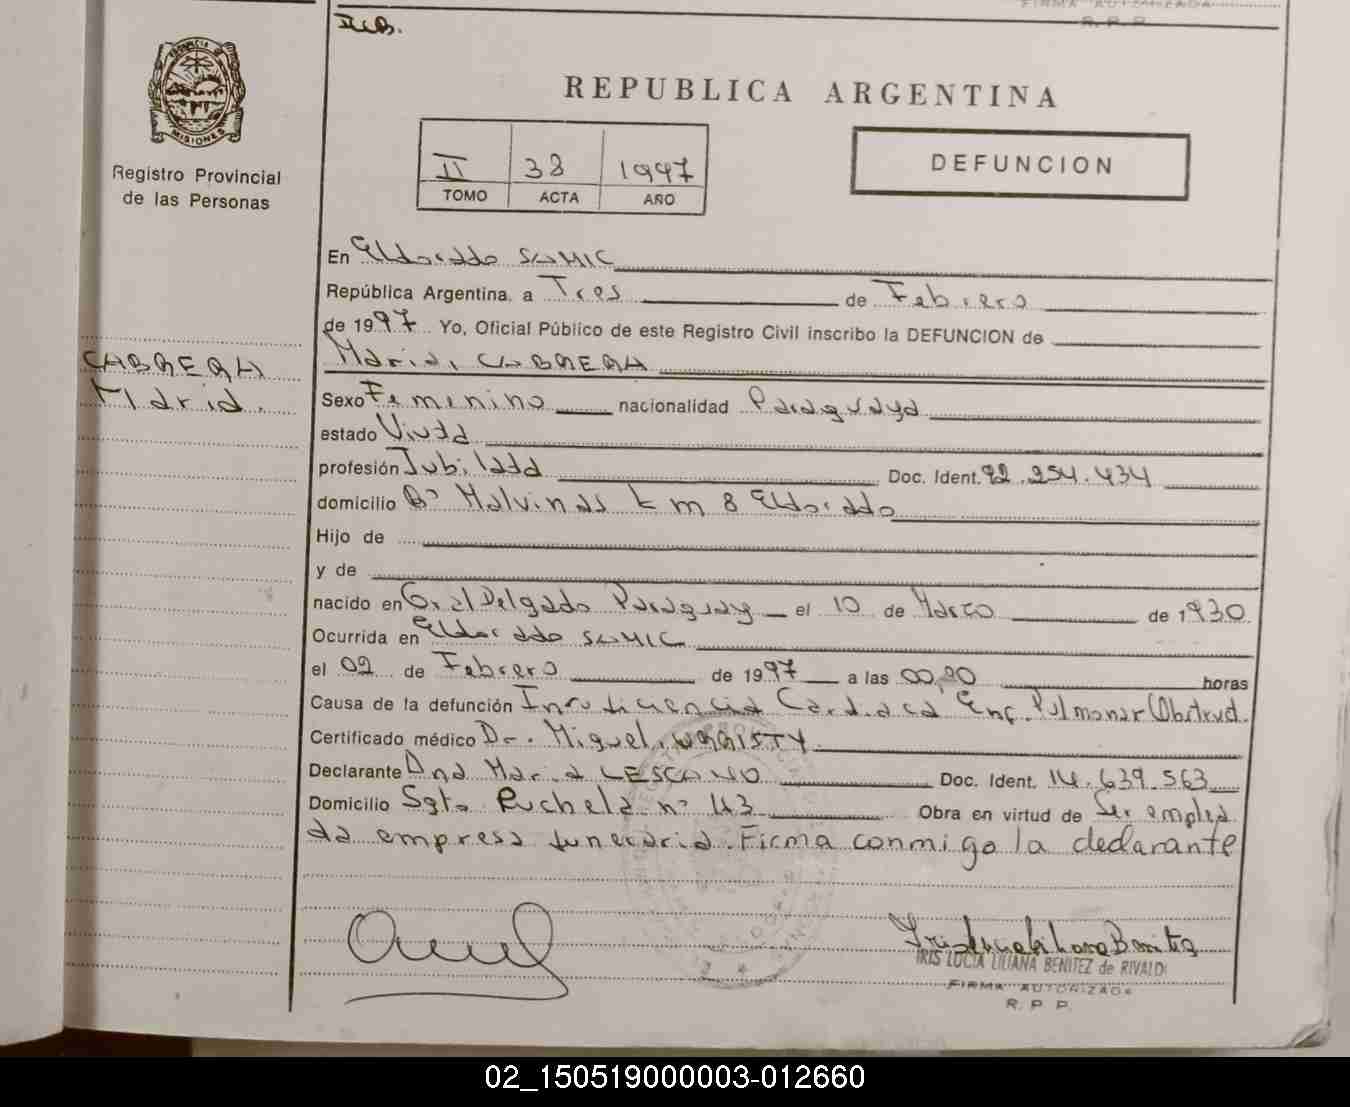 FIRMA AUTORIZADA
R. P. P.
PROVINCIA DE
MISIONES
Registro Provincial
de las Personas
REPUBLICA ARGENTINA
II 38 1997
TOMO ACTA AÑO
DEFUNCION
En Eldorado SAMIC
República Argentina, a Tres de Febrero
de 1997 Yo, Oficial Público de este Registro Civil inscribo la DEFUNCION de
CABRERA
Maria, CABRERA
Maria.
Sexo Femenino nacionalidad Paraguaya
estado Viuda
profesión Jubilada Doc. Ident. 92.254.434
domicilio Bº Malvinas km 8 Eldorado
Hijo de
y de
nacido en Gral Delgado Paraguay el 10 de Marzo de 1930
Ocurrida en Eldorado SAMIC
el 02 de Febrero de 1997 a las 00,20 horas
Causa de la defunción Insuficiencia Cardiaca Enf. Pulmonar Obstruct.
Certificado médico Dr. Miguel, URRISTY
Declarante Ana Maria LESCANO Doc. Ident. 14.639.563
Domicilio Sgto Pucheta nº 43 Obra en virtud de Ser emplea
da empresa funeraria. Firma conmigo la declarante
IRIS LUCIA LILIANA BENITEZ de RIVALDI
FIRMA AUTORIZADA
R. P. P.
02_150519000003-012660